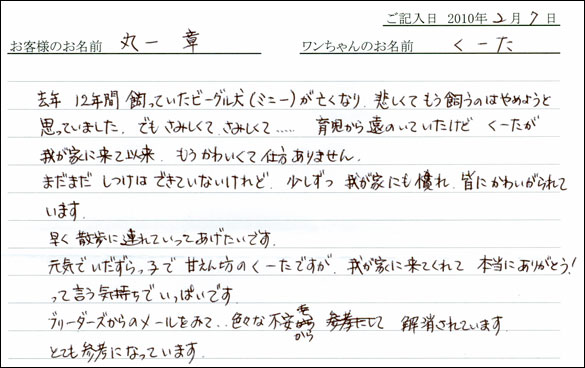 ご記入日 2010年 2月 7日
お客様のお名前 丸一 章 ワンちゃんのお名前 くーた
去年 12年間 飼っていたビーグル犬(ミニー)が亡くなり、悲しくてもう飼うのはやめようと
思っていました。でもさみしくて、さみしくて..... 育児から遠のいていたけど くーたが
我が家に来て以来、もうかわいくて仕方ありません。
まだまだ しつけはできていないけれど、少しずつ 我が家にも慣れ、皆にかわいがられて
います。
早く散歩に連れていってあげたいです。
元気でいだずらっ子で 甘えん坊のくーたですが、我が家に来てくれて 本当にありがとう!
って言う気持ちでいっぱいです。
ブリーダーズからのメールをみて.. 色々な不安も 解消されています。
とても参考になっています。